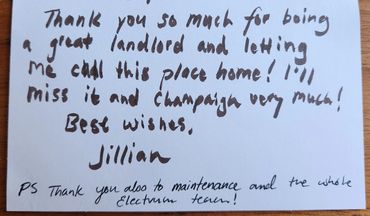 Thank you so much for being
a great landlord and letting
me call this place home! I'll
miss it and Champaign very much!
Best wishes,
Jillian
PS Thank you also to maintenance and the whole
Electrum team!